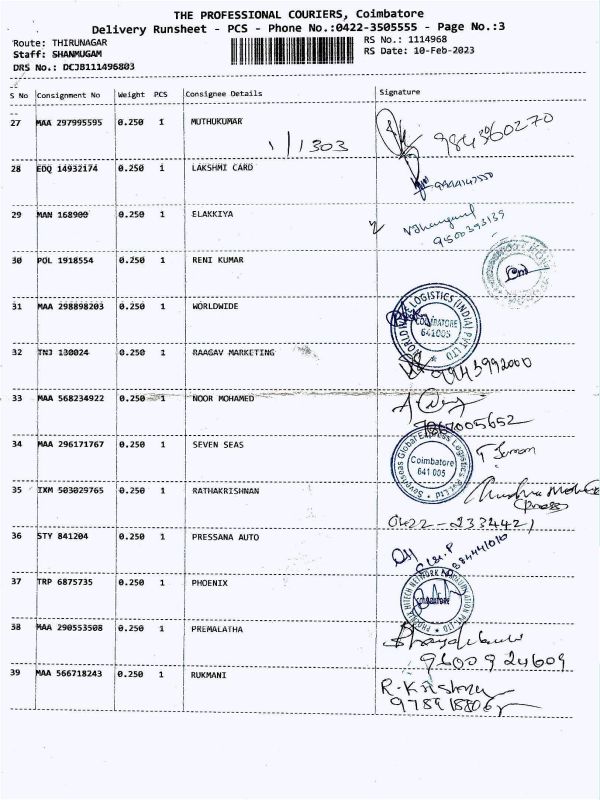 THE PROFESSIONAL COURIERS, Coimbatore
Delivery Runsheet - PCS - Phone No.:0422-3505555 - Page No.:3
Route: THIRUNAGAR
RS No.: 1114968
Staff: SHANMUGAM
RS Date: 10-Feb-2023
DRS No.: DCJB111496803
S No Consignment No Weight PCS Consignee Details Signature
27 MAA 297995595 0.250 1 MUTHUKUMAR
1/1303
28 EDQ 14932174 0.250 1 LAKSHMI CARD
29 MAN 168900 0.250 1 ELAKKIYA
9500393139
30 POL 1918554 0.250 1 RENI KUMAR
31 MAA 298898203 0.250 1 WORLDWIDE
LOGISTICS (INDIA) PVT LTD
COIMBATORE
641005
32 TNJ 130024 0.250 1 RAAGAV MARKETING
9943992000
33 MAA 568234922 0.250 1 NOOR MOHAMED
7867005652
34 MAA 296171767 0.250 1 SEVEN SEAS
Sevenseas Global Express Logistics Pvt Ltd
Coimbatore
641 005
35 IXM 503029765 0.250 1 RATHAKRISHNAN
0422-2334421
36 STY 841204 0.250 1 PRESSANA AUTO
37 TRP 6875735 0.250 1 PHOENIX
38 MAA 290553508 0.250 1 PREMALATHA
9600924609
39 MAA 566718243 0.250 1 RUKMANI
R. Krishna